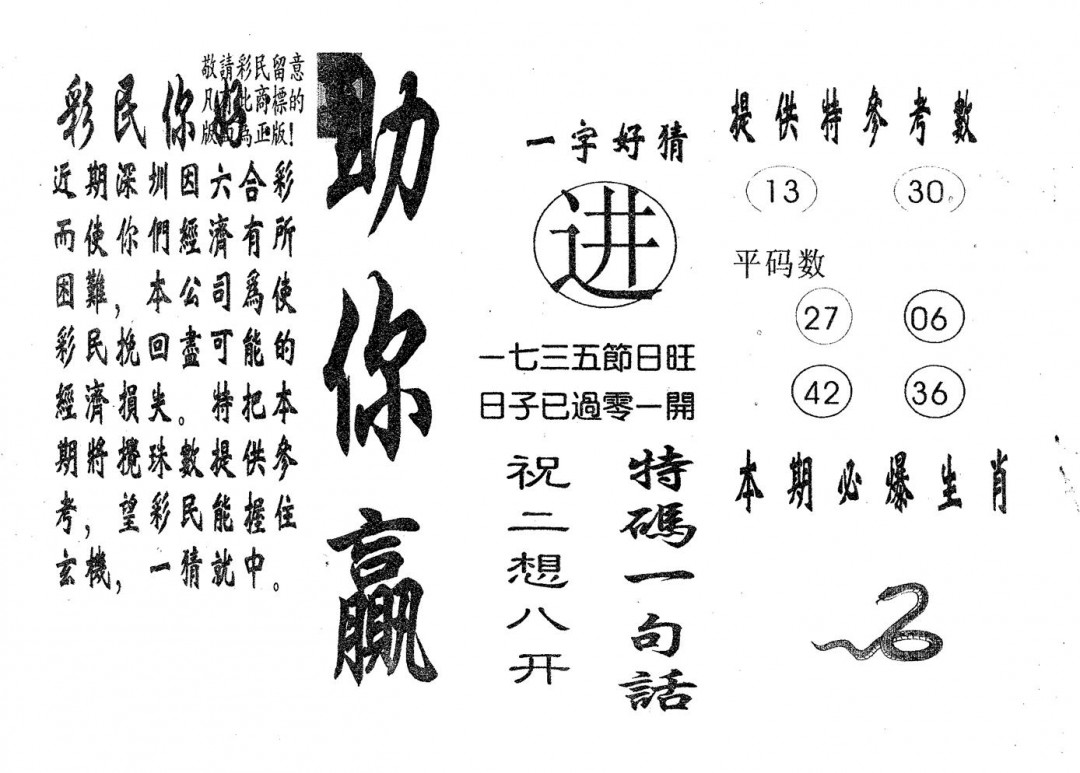 敬請彩民留意
凡此商標的
版為正版!
彩民你好
近期深圳因六合彩
而使你們經濟有所
困難,本公司爲使
彩民挽回盡可能的
經濟損失。特把本
期將攪珠數提供參
考,望彩民能握住
玄機,一猜就中。
助你贏
一字好猜
进
一七三五節日旺
日子已過零一開
特碼一句話
祝二想八开
提供特參考數
13 30
平码数
27 06
42 36
本期必爆生肖